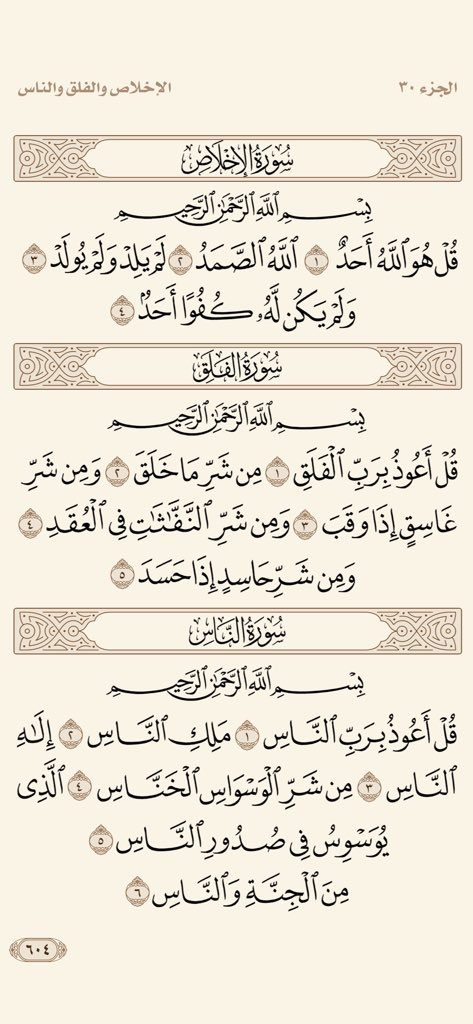 الجزء ٣٠
الإخلاص والفلق والناس
سُورَةُ الإِخْلَاصِ
بِسْمِ ٱللَّهِ ٱلرَّحْمَٰنِ ٱلرَّحِيمِ
قُلْ هُوَ ٱللَّهُ أَحَدٌ ١ ٱللَّهُ ٱلصَّمَدُ ٢ لَمْ يَلِدْ وَلَمْ يُولَدْ ٣
وَلَمْ يَكُن لَّهُۥ كُفُوًا أَحَدٌۢ ٤
سُورَةُ الفَلَقِ
بِسْمِ ٱللَّهِ ٱلرَّحْمَٰنِ ٱلرَّحِيمِ
قُلْ أَعُوذُ بِرَبِّ ٱلْفَلَقِ ١ مِن شَرِّ مَا خَلَقَ ٢ وَمِن شَرِّ
غَاسِقٍ إِذَا وَقَبَ ٣ وَمِن شَرِّ ٱلنَّفَّٰثَٰتِ فِي ٱلْعُقَدِ ٤
وَمِن شَرِّ حَاسِدٍ إِذَا حَسَدَ ٥
سُورَةُ النَّاسِ
بِسْمِ ٱللَّهِ ٱلرَّحْمَٰنِ ٱلرَّحِيمِ
قُلْ أَعُوذُ بِرَبِّ ٱلنَّاسِ ١ مَلِكِ ٱلنَّاسِ ٢ إِلَٰهِ
ٱلنَّاسِ ٣ مِن شَرِّ ٱلْوَسْوَاسِ ٱلْخَنَّاسِ ٤ ٱلَّذِي
يُوَسْوِسُ فِي صُدُورِ ٱلنَّاسِ ٥
مِنَ ٱلْجِنَّةِ وَٱلنَّاسِ ٦
٦٠٤